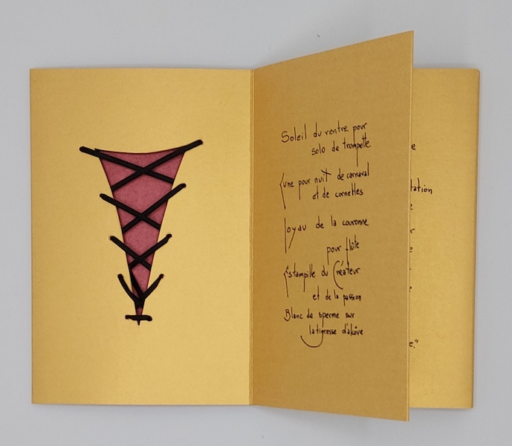 Soleil du ventre pour
solo de trompette
Lune pour nuit de carnaval
et de cornettes
Joyau de la couronne
pour flûte
Estampille du Créateur
et de la passion
Blanc de sperme sur
la tigresse d'ébène
e
tation
e
e
e."